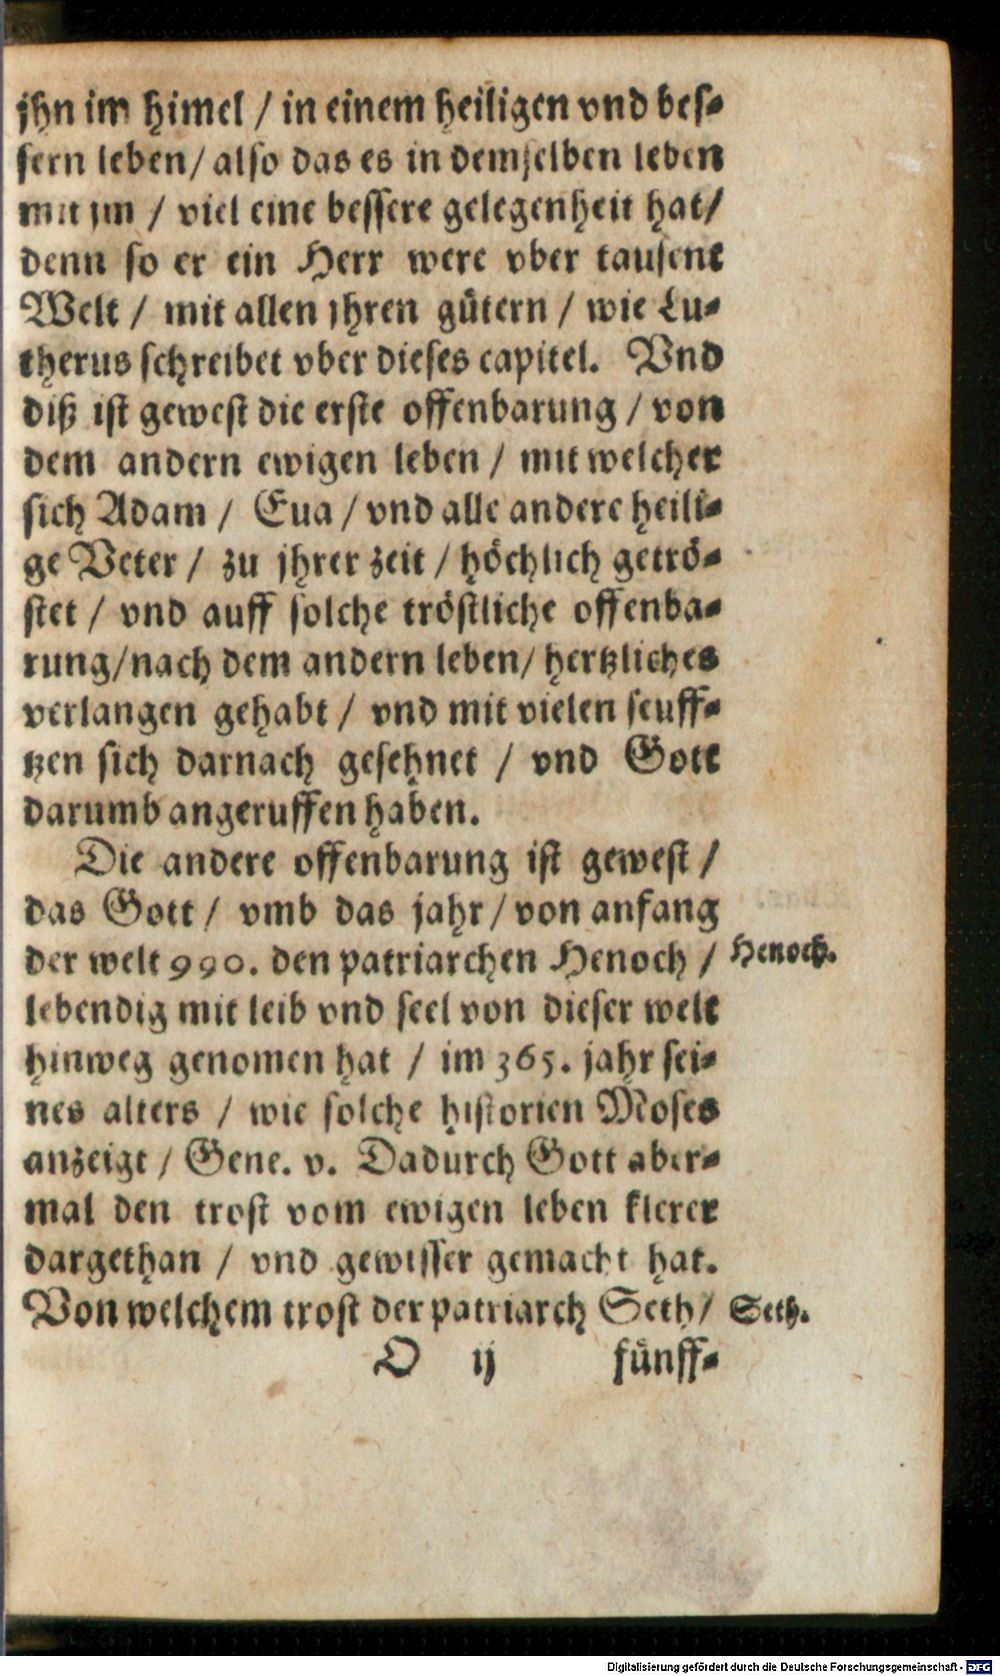 jhn im himel / in einem heiligen vnd bes⸗
sern leben / also das es in demselben leben
mit jm / viel eine bessere gelegenheit hat /
denn so er ein Herr were vber tausent
Welt / mit allen jhren gütern / wie Lu⸗
therus schreibet vber dieses capitel. Vnd
diß ist gewest die erste offenbarung / von
dem andern ewigen leben / mit welcher
sich Adam / Eua / vnd alle andere heili⸗
ge Veter / zu jhrer zeit / höchlich getrö⸗
stet / vnd auff solche tröstliche offenba⸗
rung / nach dem andern leben / hertzliches
verlangen gehabt / vnd mit vielen seuff⸗
tzen sich darnach gesehnet / vnd Gott
darumb angeruffen haben.
Die andere offenbarung ist gewest /
das Gott / vmb das jahr / von anfang
der welt 990. den patriarchen Henoch / Henoch.
lebendig mit leib vnd seel von dieser welt
hinweg genomen hat / im 365. jahr sei⸗
nes alters / wie solche historien Moses
anzeigt / Gene. v. Dadurch Gott aber⸗
mal den trost vom ewigen leben klerer
dargethan / vnd gewisser gemacht hat.
Von welchem trost der patriarch Seth / Seth.
O ij fünff⸗
Digitalisierung gefördert durch die Deutsche Forschungsgemeinschaft - DFG